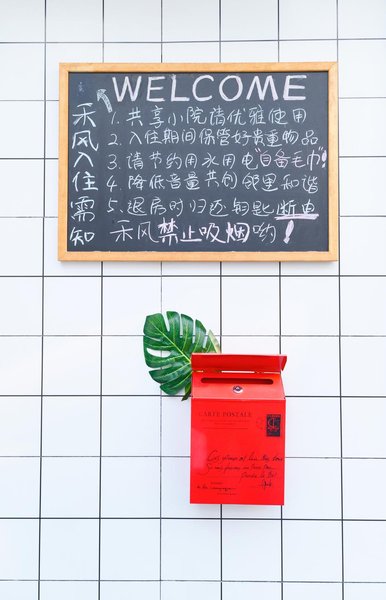 WELCOME
禾风入住需知
1. 共享小院请优雅使用
2. 入住期间保管好贵重物品
3. 请节约用水用电"自备毛巾"!
4. 降低音量共创邻里和谐
5. 退房时归还钥匙断电
禾风禁止吸烟哟!
CARTE POSTALE